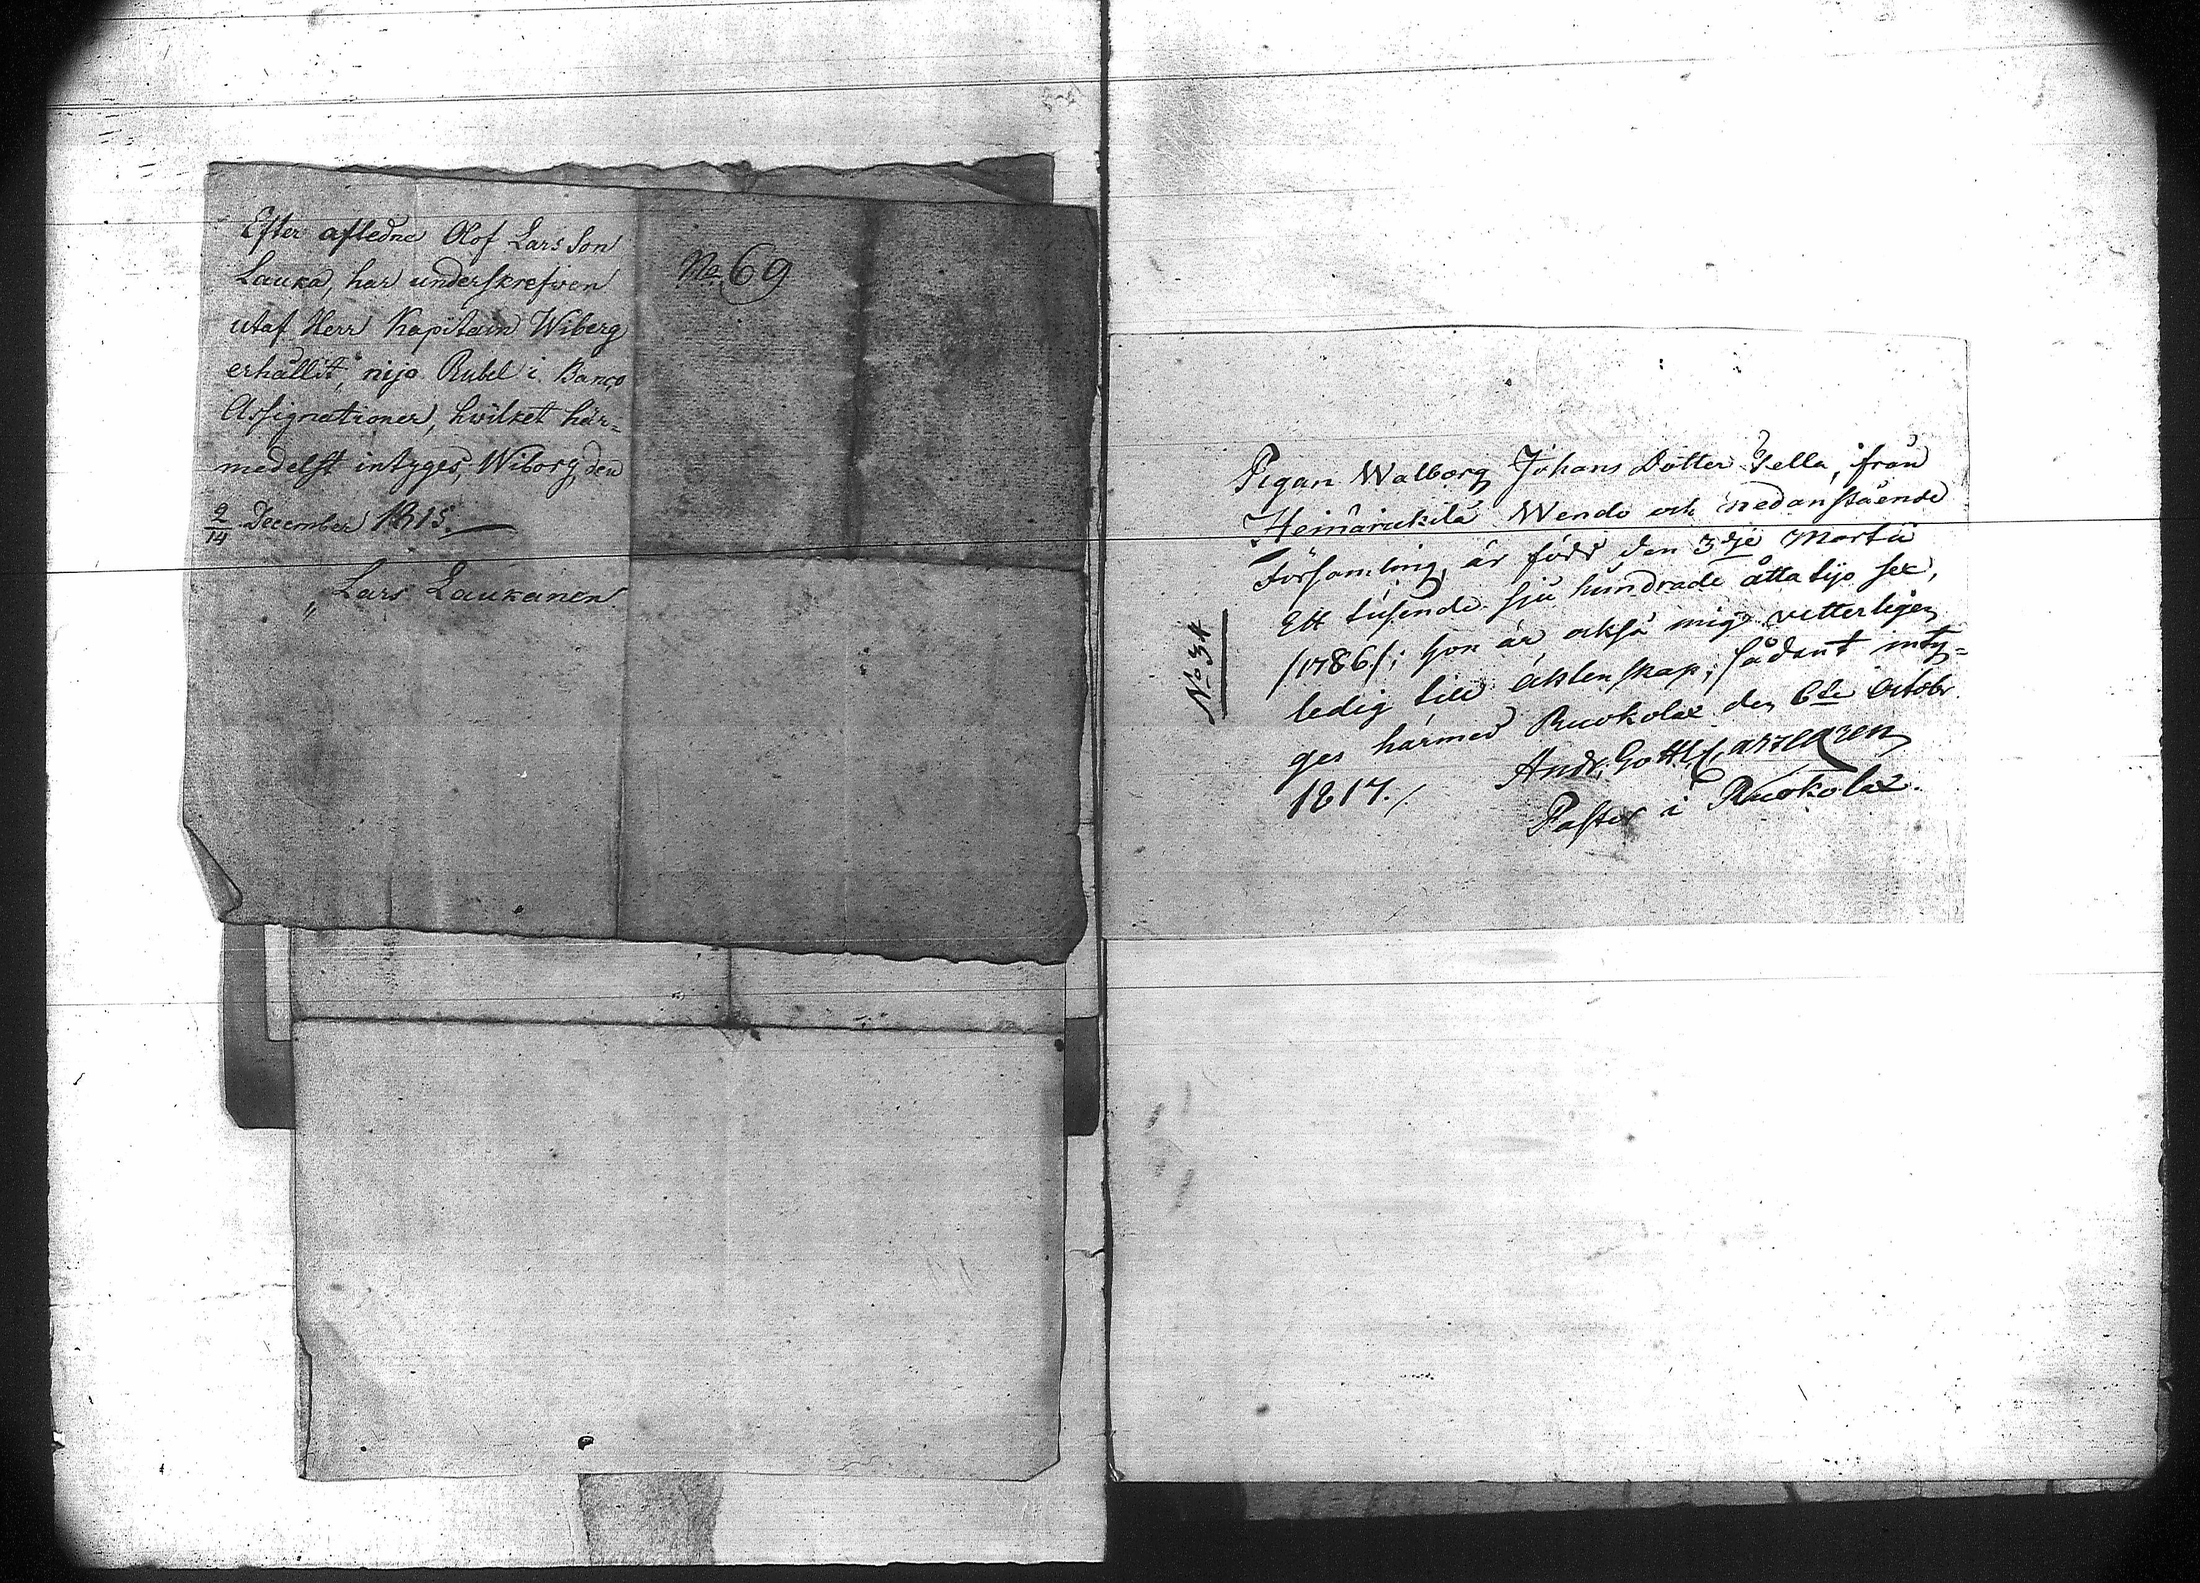 Efter afledne Olof Lars Son
Lauka, har underskrefwen
utaf Herr Kapitain Wiberg
erhållit, nijo Rubel i Banco
Assignationer, hwilket här=
medelst intyges, Wiborg den
2/14 December 1815.
Lars Laukanen
No. 69
No 34
Pigan Walborg Johans Dotter Sella, från
Wendo och nedanstående
Församling, är född den 3dje Martii
Ett tusende sju hundrade åttatijo sex,
/1786/; hon är också mig vetterligen
ledig till äktenskap; sådant inty=
ges härmed Ruokolax den 6te Octobr.
1817./. Andr. Gottl.
Pastor i Ruokolax.